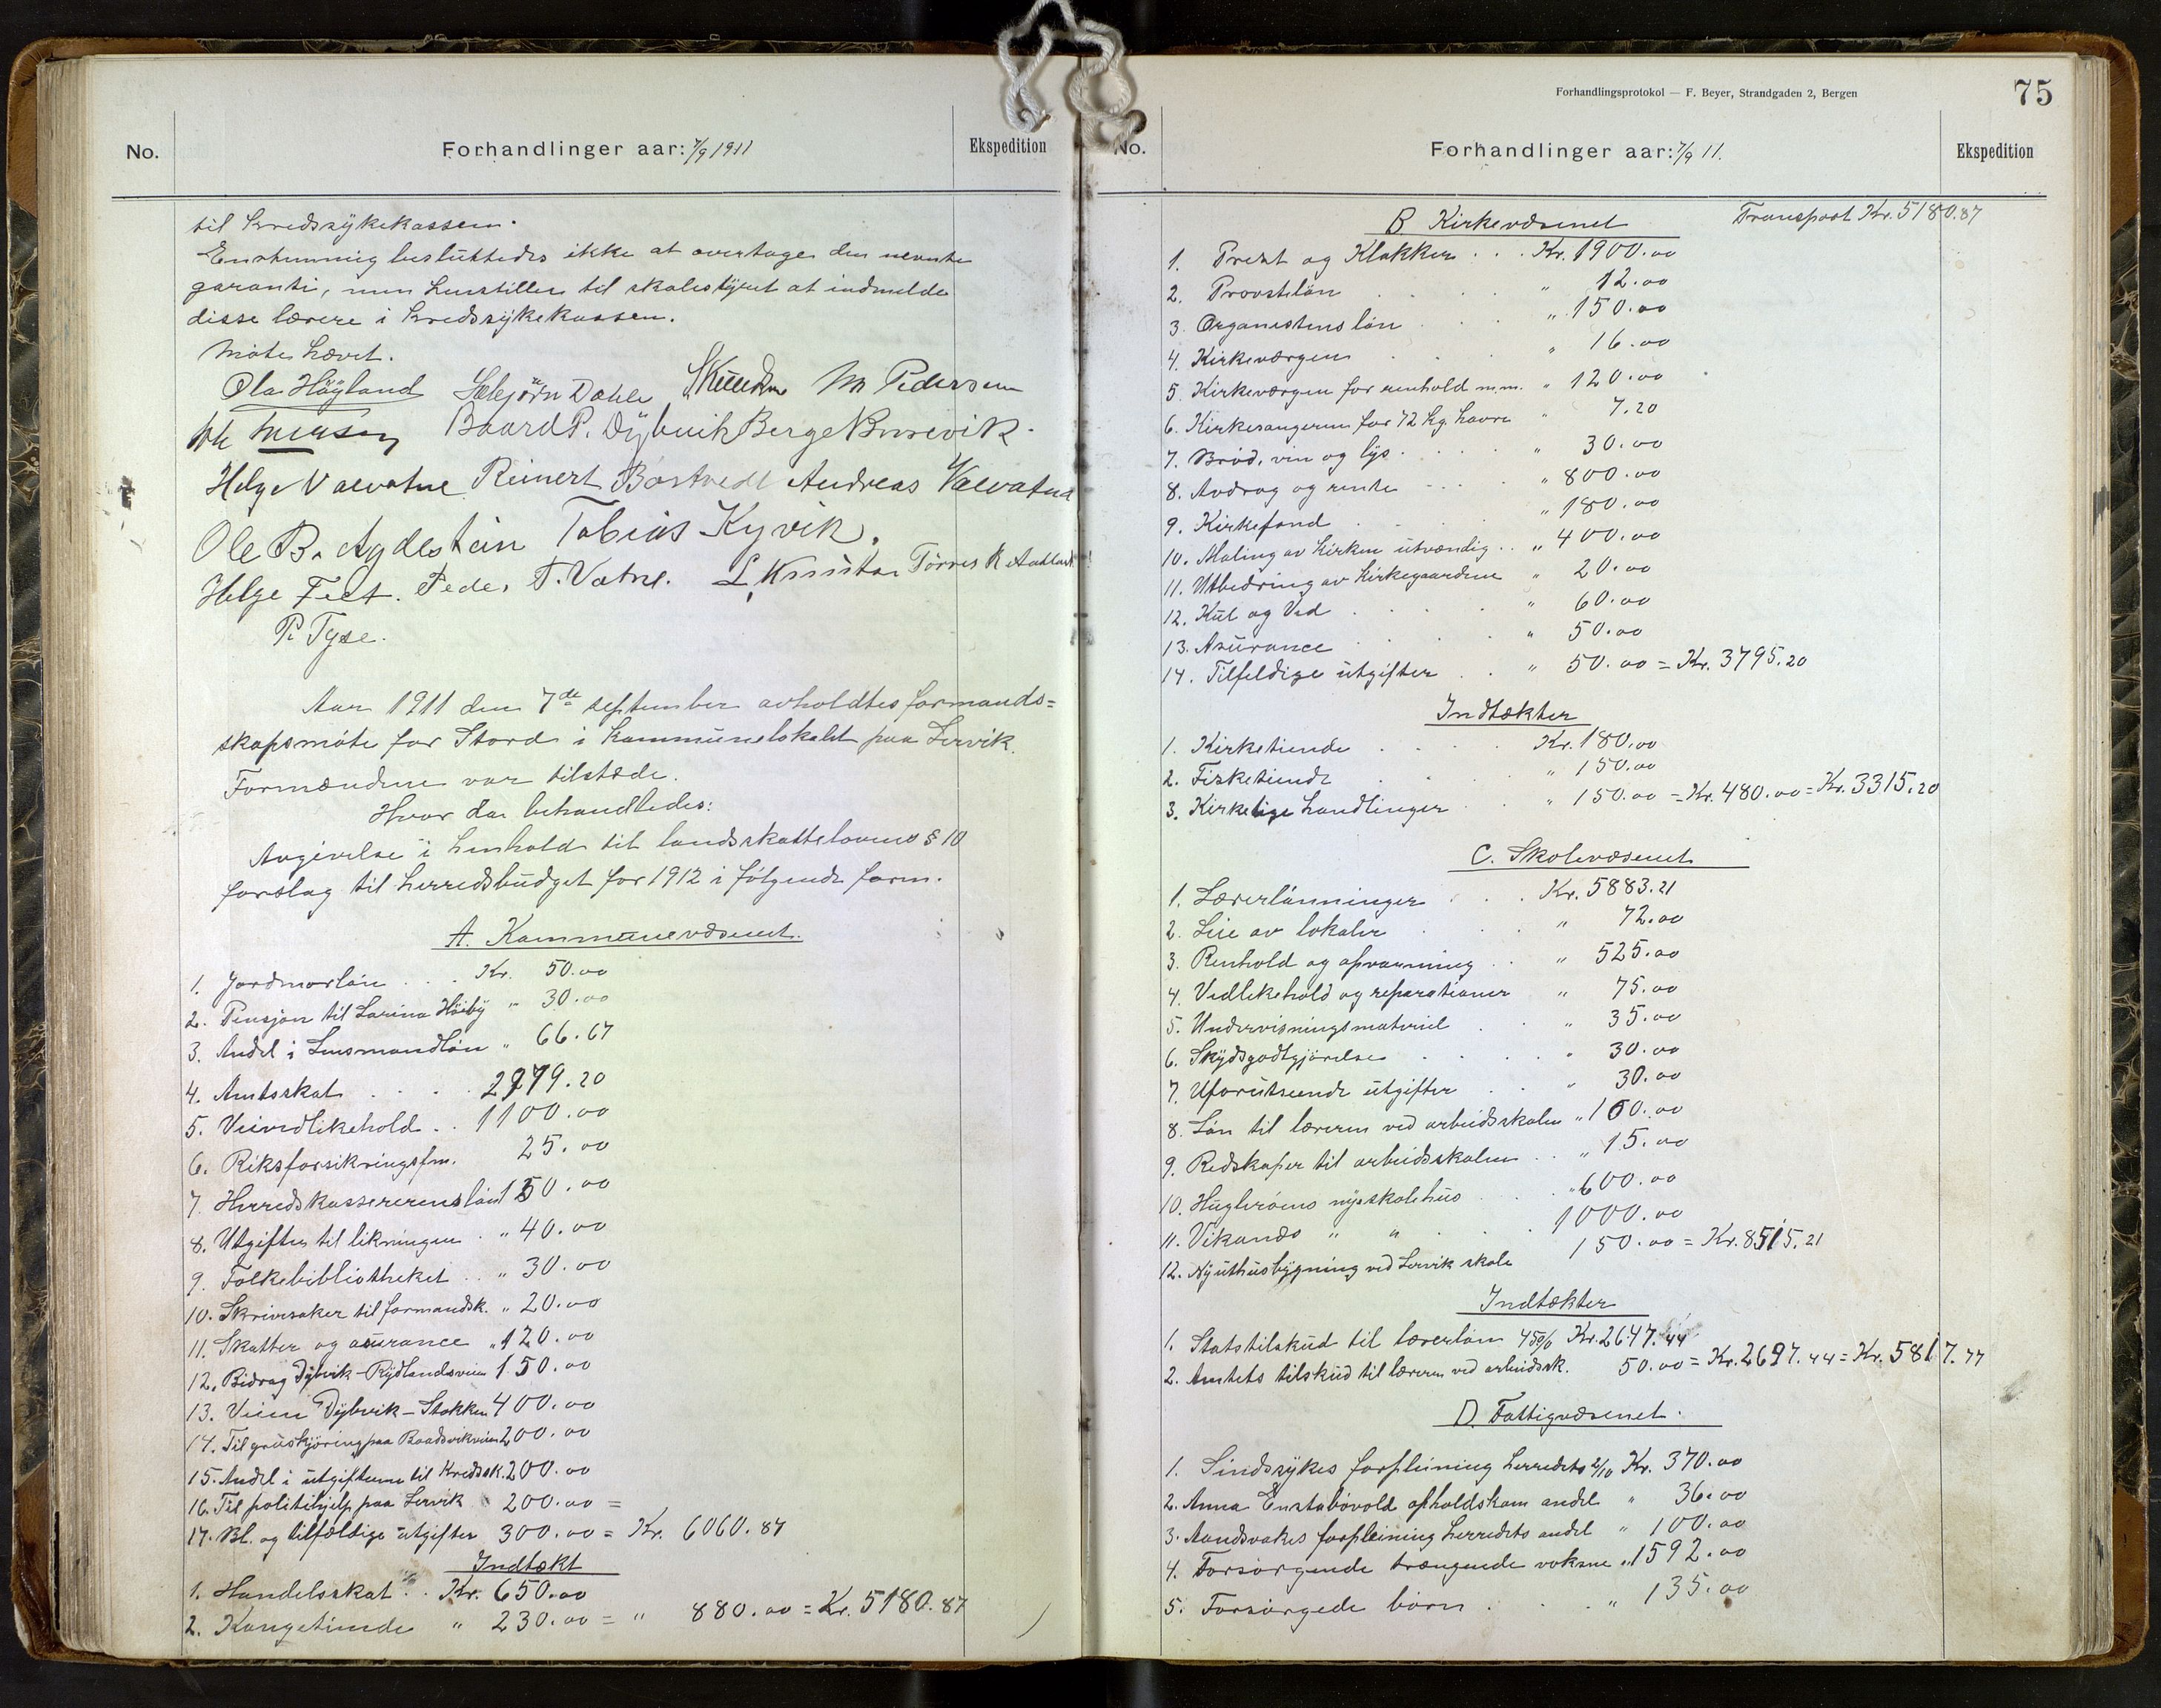 No.
Forhandlinger aar: 7/9 1911
Ekspedition
til kredssykekassen.
Enstemmig besluttedes ikke at overtage den nevnte
garanti, men henstiller til skolestyret at indmelde
disse lærere i kredssykekassen.
Møte hævet.
Ola Høyland Sebjörn Dahle M Pedersen
Baard P. Dybvik Berge
Helge Valvatne Reinert Børtvedt Andreas Valvatne
Ole B. Agdestein Tobias Kyvik.
Helge Peder T. Vatne. L. Knutsen Tørres R
P. Tyse.
Aar 1911 den 7de september avholdtes formands=
skapsmøte for Stord i kommunelokalet paa Lervik.
Formændene var tilstæde.
Hvor da behandledes:
Avgivelse i henhold til landsskattelovens § 10
forslag til herredsbudget for 1912 i følgende form.
A. Kommunevæsenet.
1. Jordmorløn . . . Kr. 50.00
2. Pensjon til Larina Høiby " 30.00
3. Andel i Lensmandløn " 66.67
4. Amtsskat . . . . 2979.20
5. Veivedlikehold . . 1100.00
6. Riksforsikringsfm. 25.00
7. Herredskassererens løn 150.00
8. Utgifter til likningen . " 40.00
9. Folkebibliotheket . . " 30.00
10. Skrivesaker til formandsk. " 20.00
11. Skatter og asurance " 120.00
12. Bidrag Dybvik-Rydlandsveien 150.00
13. Veien Dybvik - Stokken 400.00
14. Til gruskjøring paa Baadsvikveien 200.00
15. Andel i utgifterne til Kredssk. 200.00
16. Til politihjelp paa Lervik 200.00 =
17. Bl. og tilfældige utgifter 300.00 = Kr. 6060.87
Indtækt
1. Handelsskat . . Kr. 650.00
2. Kongetiende " 230.00 = " 880.00 = Kr. 5180.87
Forhandlingsprotokol — F. Beyer, Strandgaden 2, Bergen
75
No.
Forhandlinger aar: 7/9 11.
Ekspedition
B. Kirkevæsenet Transport Kr. 5180.87
1. Prest og Klokker . . . Kr. 1900.00
2. Provsteløn . . . " 12.00
3. Organistens løn . . . " 150.00
4. Kirkeværgen . . . " 16.00
5. Kirkeværgen for renhold m.m. " 120.00
6. Kirkesangeren for 72 kg. havre " 7.20
7. Brød, vin og lys . . . . " 30.00
8. Avdrag og rente - - - . " 800.00
9. Kirkefond . . . . " 180.00
10. Maling av kirken utvændig . . " 400.00
11. Utbedring av Kirkegaardene " 20.00
12. Kul og Ved . . . . " 60.00
13. Asurance . . . . " 50.00
14. Tilfeldige utgifter . . " 50.00 = Kr. 3795.20
Indtækter
1. Kirketiende . . . . Kr. 180.00
2. Fisketiende . . . . " 150.00
3. Kirkelige handlinger . . " 150.00 = Kr. 480.00 = Kr. 3315.20
C. Skolevæsenet
1. Lærerlønninger . . . Kr. 5883.21
2. Leie av lokaler . . . " 72.00
3. Renhold og opvarming . . " 525.00
4. Vedlikehold og reparationer " 75.00
5. Undervisningsmateriel . . " 35.00
6. Skydsgodtgjørelse . . . . " 30.00
7. Uforutseende utgifter . . " 30.00
8. Løn til læreren ved arbeidsskolen " 100.00
9. Redskaper til arbeidsskolen . . " 15.00
10. Huglerøens nye skolehus . . . " 600.00
11. Vikands " " . . . 1000.00
12. Ny uthusbygning ved Lervik skole 150.00 = Kr. 8515.21
Indtækter
1. Statstilskud til lærerløn 45% Kr. 2647.44
2. Amtets tilskud til læreren ved arbeidssk. 50.00 = Kr. 2697.44 = Kr. 5817.77
D. Fattigvæsenet.
1. Sindssykes forpleining herredets 2/10 Kr. 370.00
2. Anna Enstabøvold opholdskom andel " 36.00
3. Aandsvakes forpleining herredets andel " 100.00
4. Forsørgende trængende voksne " 1592.00
5. Forsørgede børn . . . " 135.00